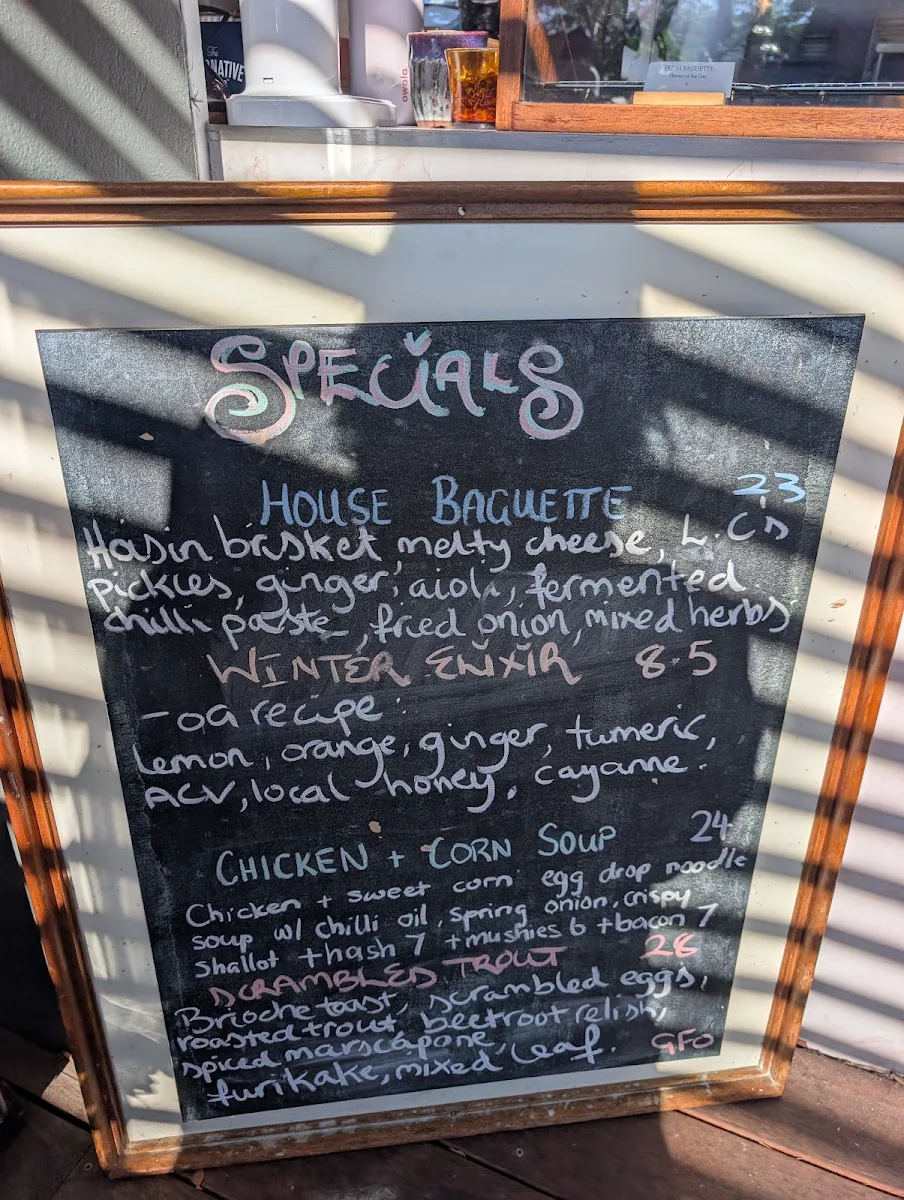 The
NATIVE
owala
FRESH BAGUETTE
Flavour of the Day
SPECIALS
HOUSE BAGUETTE 23
Hoisin brisket, melty cheese, L.C's
pickles, ginger, aioli, fermented
chilli paste, fried onion, mixed herbs
WINTER ELIXIR 8.5
- oa recipe:
Lemon, orange, ginger, tumeric,
ACV, local honey, cayanne.
CHICKEN + CORN SOUP 24
Chicken + sweet corn egg drop noodle
soup w/ chilli oil, spring onion, crispy
shallot +hash 7 +mushies 6 +bacon 7
SCRAMBLED TROUT 28
Brioche toast, scrambled eggs,
roasted trout, beetroot relish,
spiced marscapone,
furikake, mixed leaf. GFO